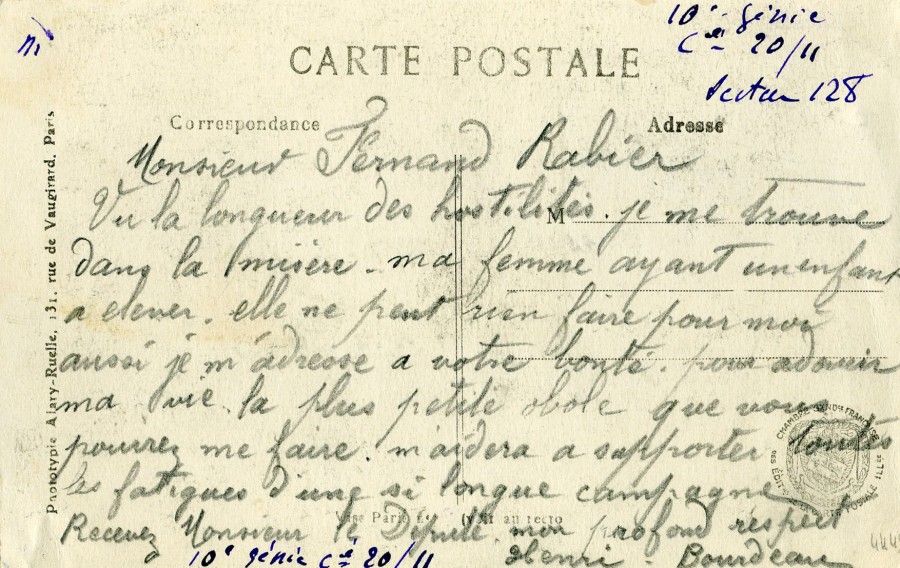 10e génie
Cie 20/11
Secteur 128
CARTE POSTALE
Correspondance
Adresse
M
Monsieur Fernand Rabier
Vu la longueur des hostilités. je me trouve
dans la misère. ma femme ayant un enfant
a elever. elle ne peut rien faire pour moi
aussi je m'adresse a votre bonté. pour adoucir
ma vie la plus petite obole que vous
pourrez me faire. m'aidera a supporter toutes
les fatigues d'une si longue campagne
Recevez Monsieur le Député mon profond respect
Henri Bourdeau
10e génie Cie 20/11
Phototypie Alary-Ruelle, 131, rue de Vaugirard, Paris
Visé Paris au recto